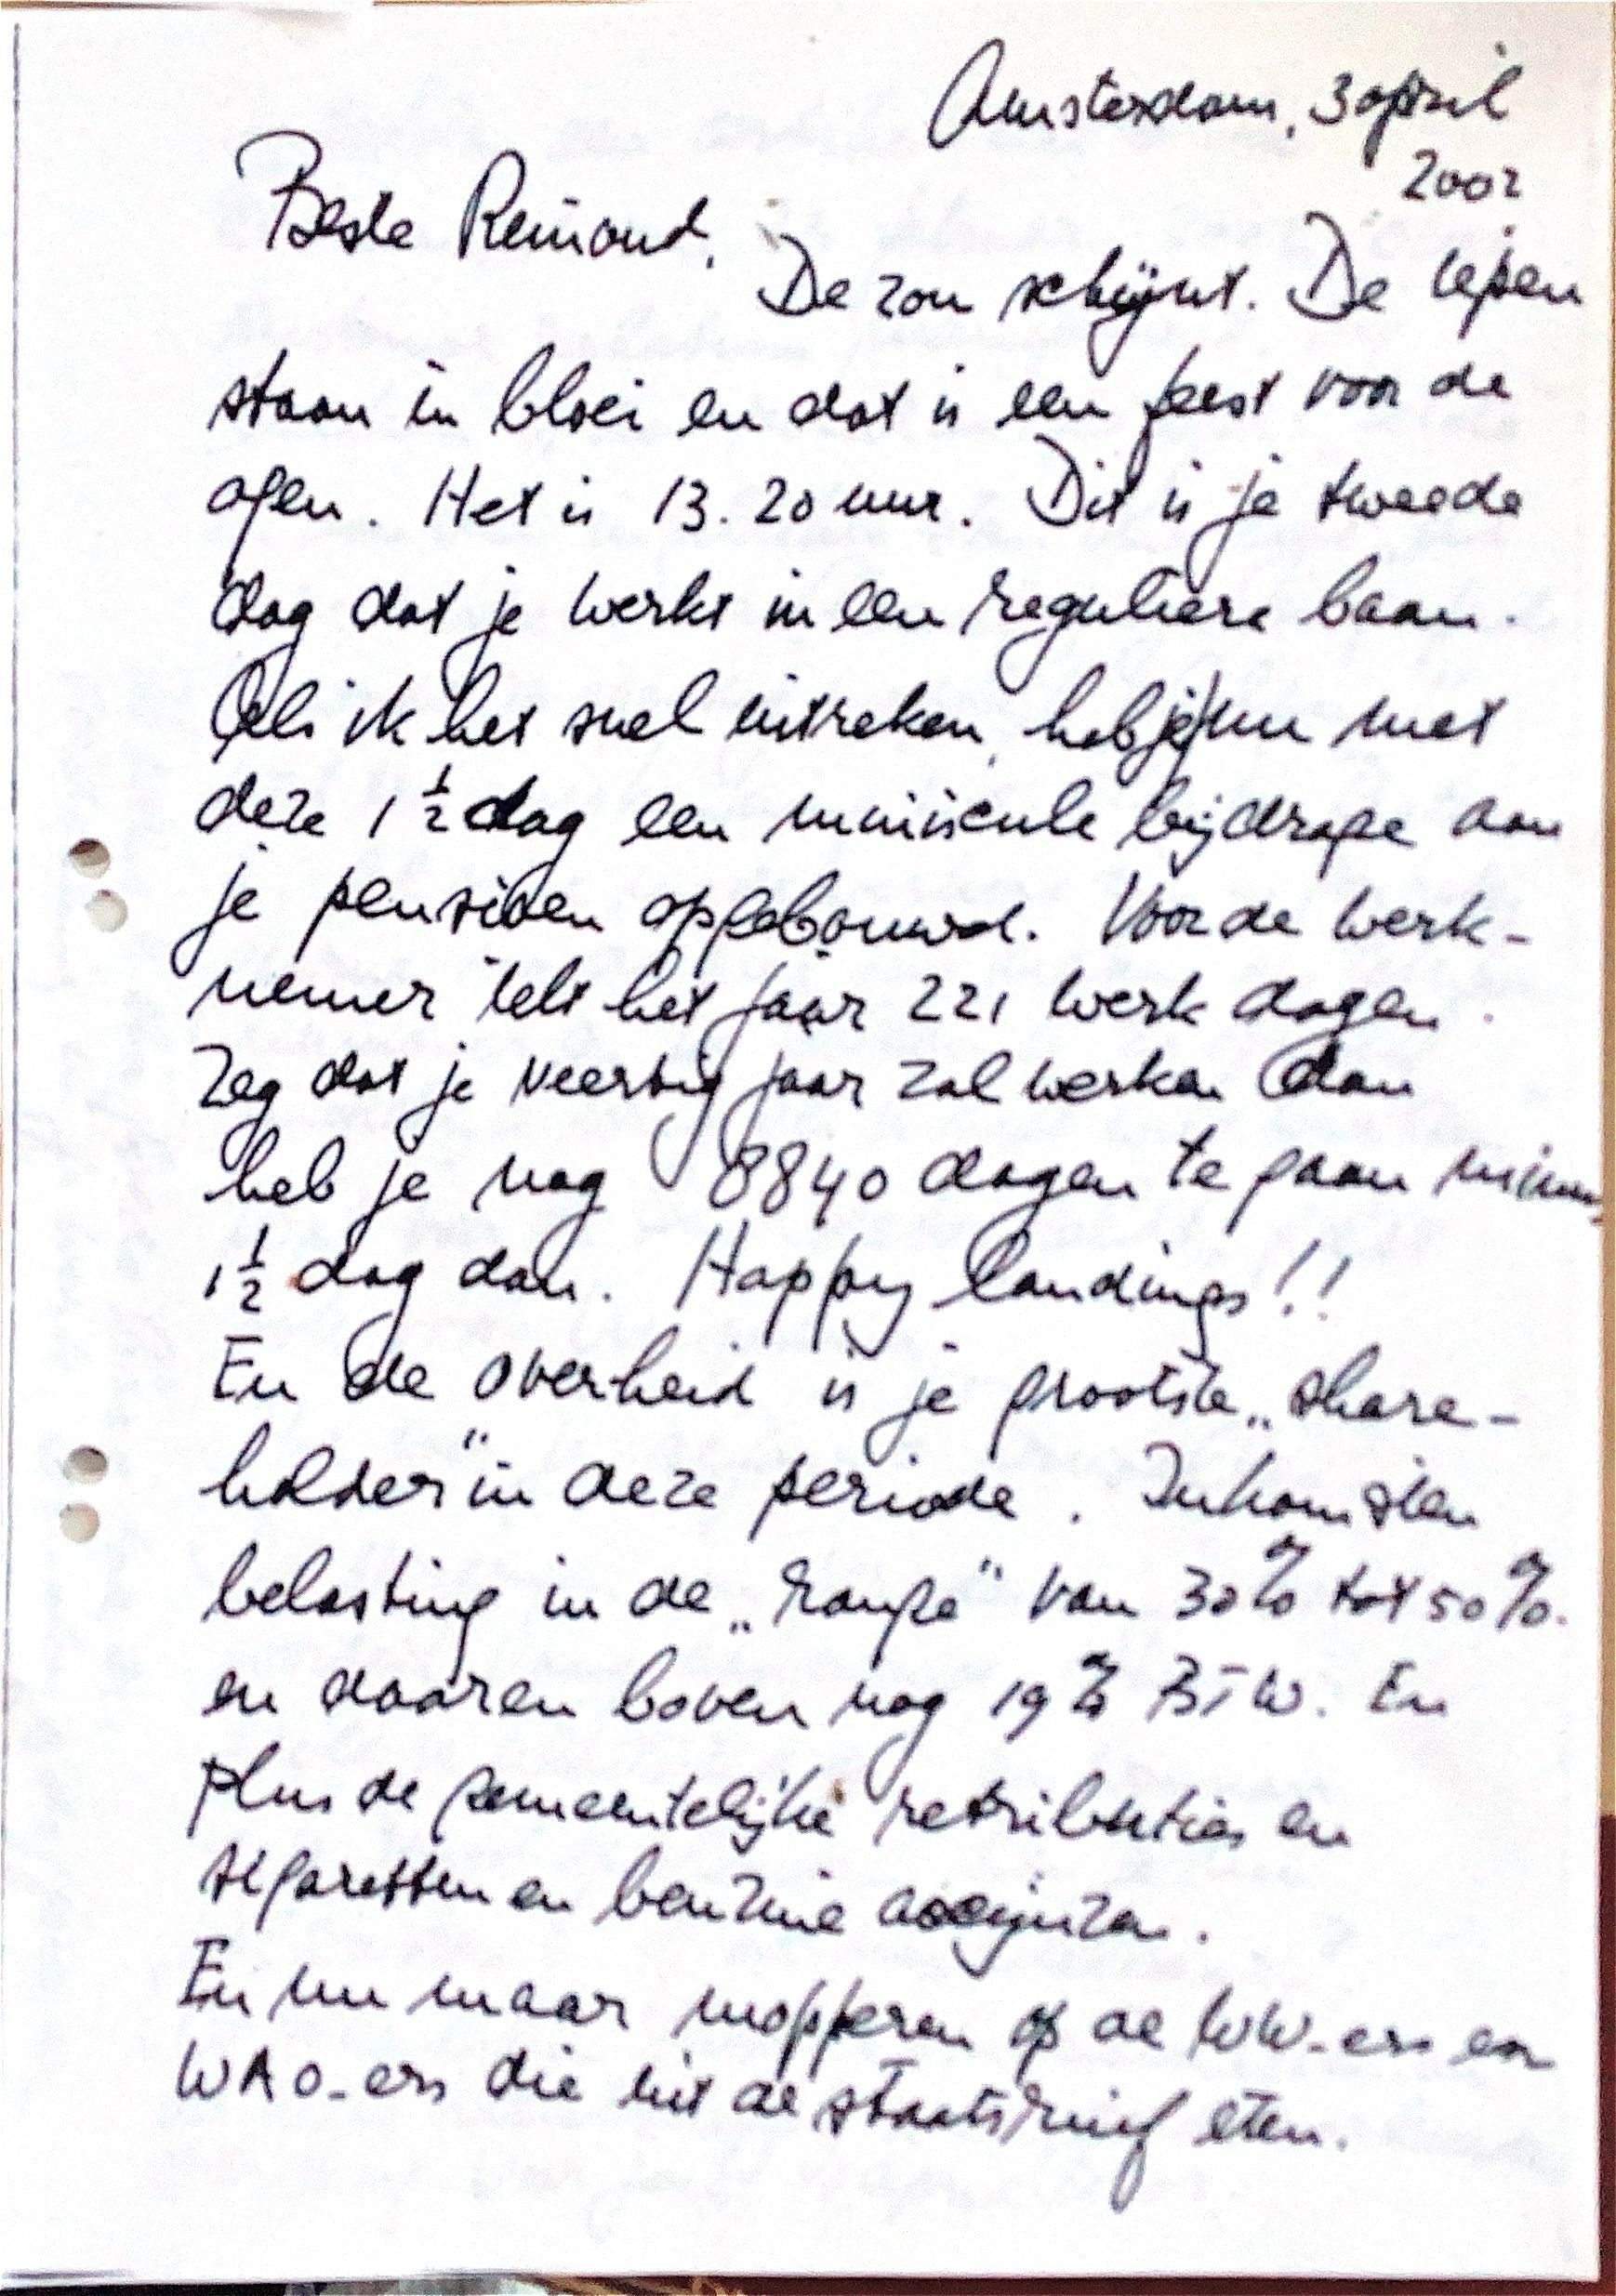 Amsterdam, 3 april
2002
Beste Reinoud,
De zon schijnt. De iepen
staan in bloei en dat is een feest voor de
ogen. Het is 13.20 uur. Dit is je tweede
dag dat je werkt in een reguliere baan.
Als ik het snel uitreken, heb je nu met
deze 1 1/2 dag een miniscule bijdrage aan
je pensioen opgebouwd. Voor de werk-
nemer telt het jaar 221 werk dagen.
Zeg dat je veertig jaar zal werken dan
heb je nog 8840 dagen te gaan minus
1 1/2 dag dan. Happy landings!!
En de overheid is je grootste „share-
holder" in deze periode. Inkomsten
belasting in de „range" van 30% tot 50%.
en daaren boven nog 19% BTW. En
plus de gemeentelijke retributies en
sigaretten en benzine accijnzen.
En nu maar mopperen op de WW-ers en
WAO-ers die uit de staatsruif eten.